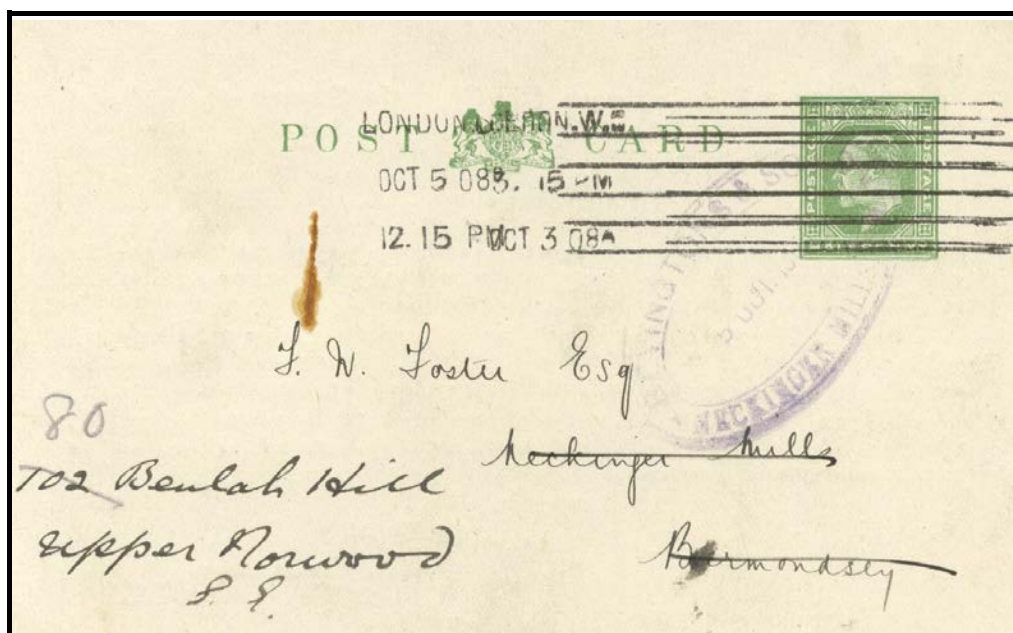 POST CARD
LONDON W.
OCT 5 08 3. 15 PM
12. 15 PM OCT 3 08
& SO
NECKINGER MILLS
F. W. Foster Esq
Neckinger Mills
Bermondsey
80
102 Beulah Hill
Upper Norwood
S. E.